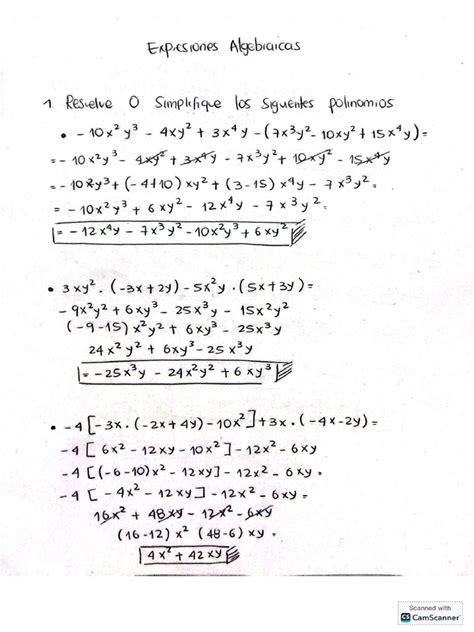 Expresiones Algebraicas
1. Resuelve O Simplifique los siguientes polinomios
• - 10x² y³ - 4xy² + 3x⁴y - (7x³y² - 10xy² + 15x⁴y) =
= - 10x²y³ - 4xy² + 3x⁴y - 7x³y² + 10xy² - 15x⁴y
= - 10x²y³ + (-4+10) xy² + (3-15) x⁴y - 7x³y² =
= - 10x²y³ + 6xy² - 12x⁴y - 7x³y² =
= - 12x⁴y - 7x³y² - 10x²y³ + 6xy²
• 3xy² . (-3x + 2y) - 5x²y . (5x + 3y) =
- 9x²y² + 6xy³ - 25x³y - 15x²y²
(-9-15) x²y² + 6xy³ - 25x³y
24x²y² + 6xy³ - 25x³y
= - 25x³y - 24x²y² + 6xy³
• -4 [-3x . (-2x + 4y) - 10x²] + 3x . (-4x - 2y) =
-4 [6x² - 12xy - 10x²] - 12x² - 6xy
-4 [(-6-10)x² - 12xy] - 12x² - 6xy =
-4 [- 4x² - 12xy] - 12x² - 6xy =
16x² + 48xy - 12x² - 6xy
(16-12) x² (48-6) xy =
4x² + 42xy
Scanned with
CS CamScanner